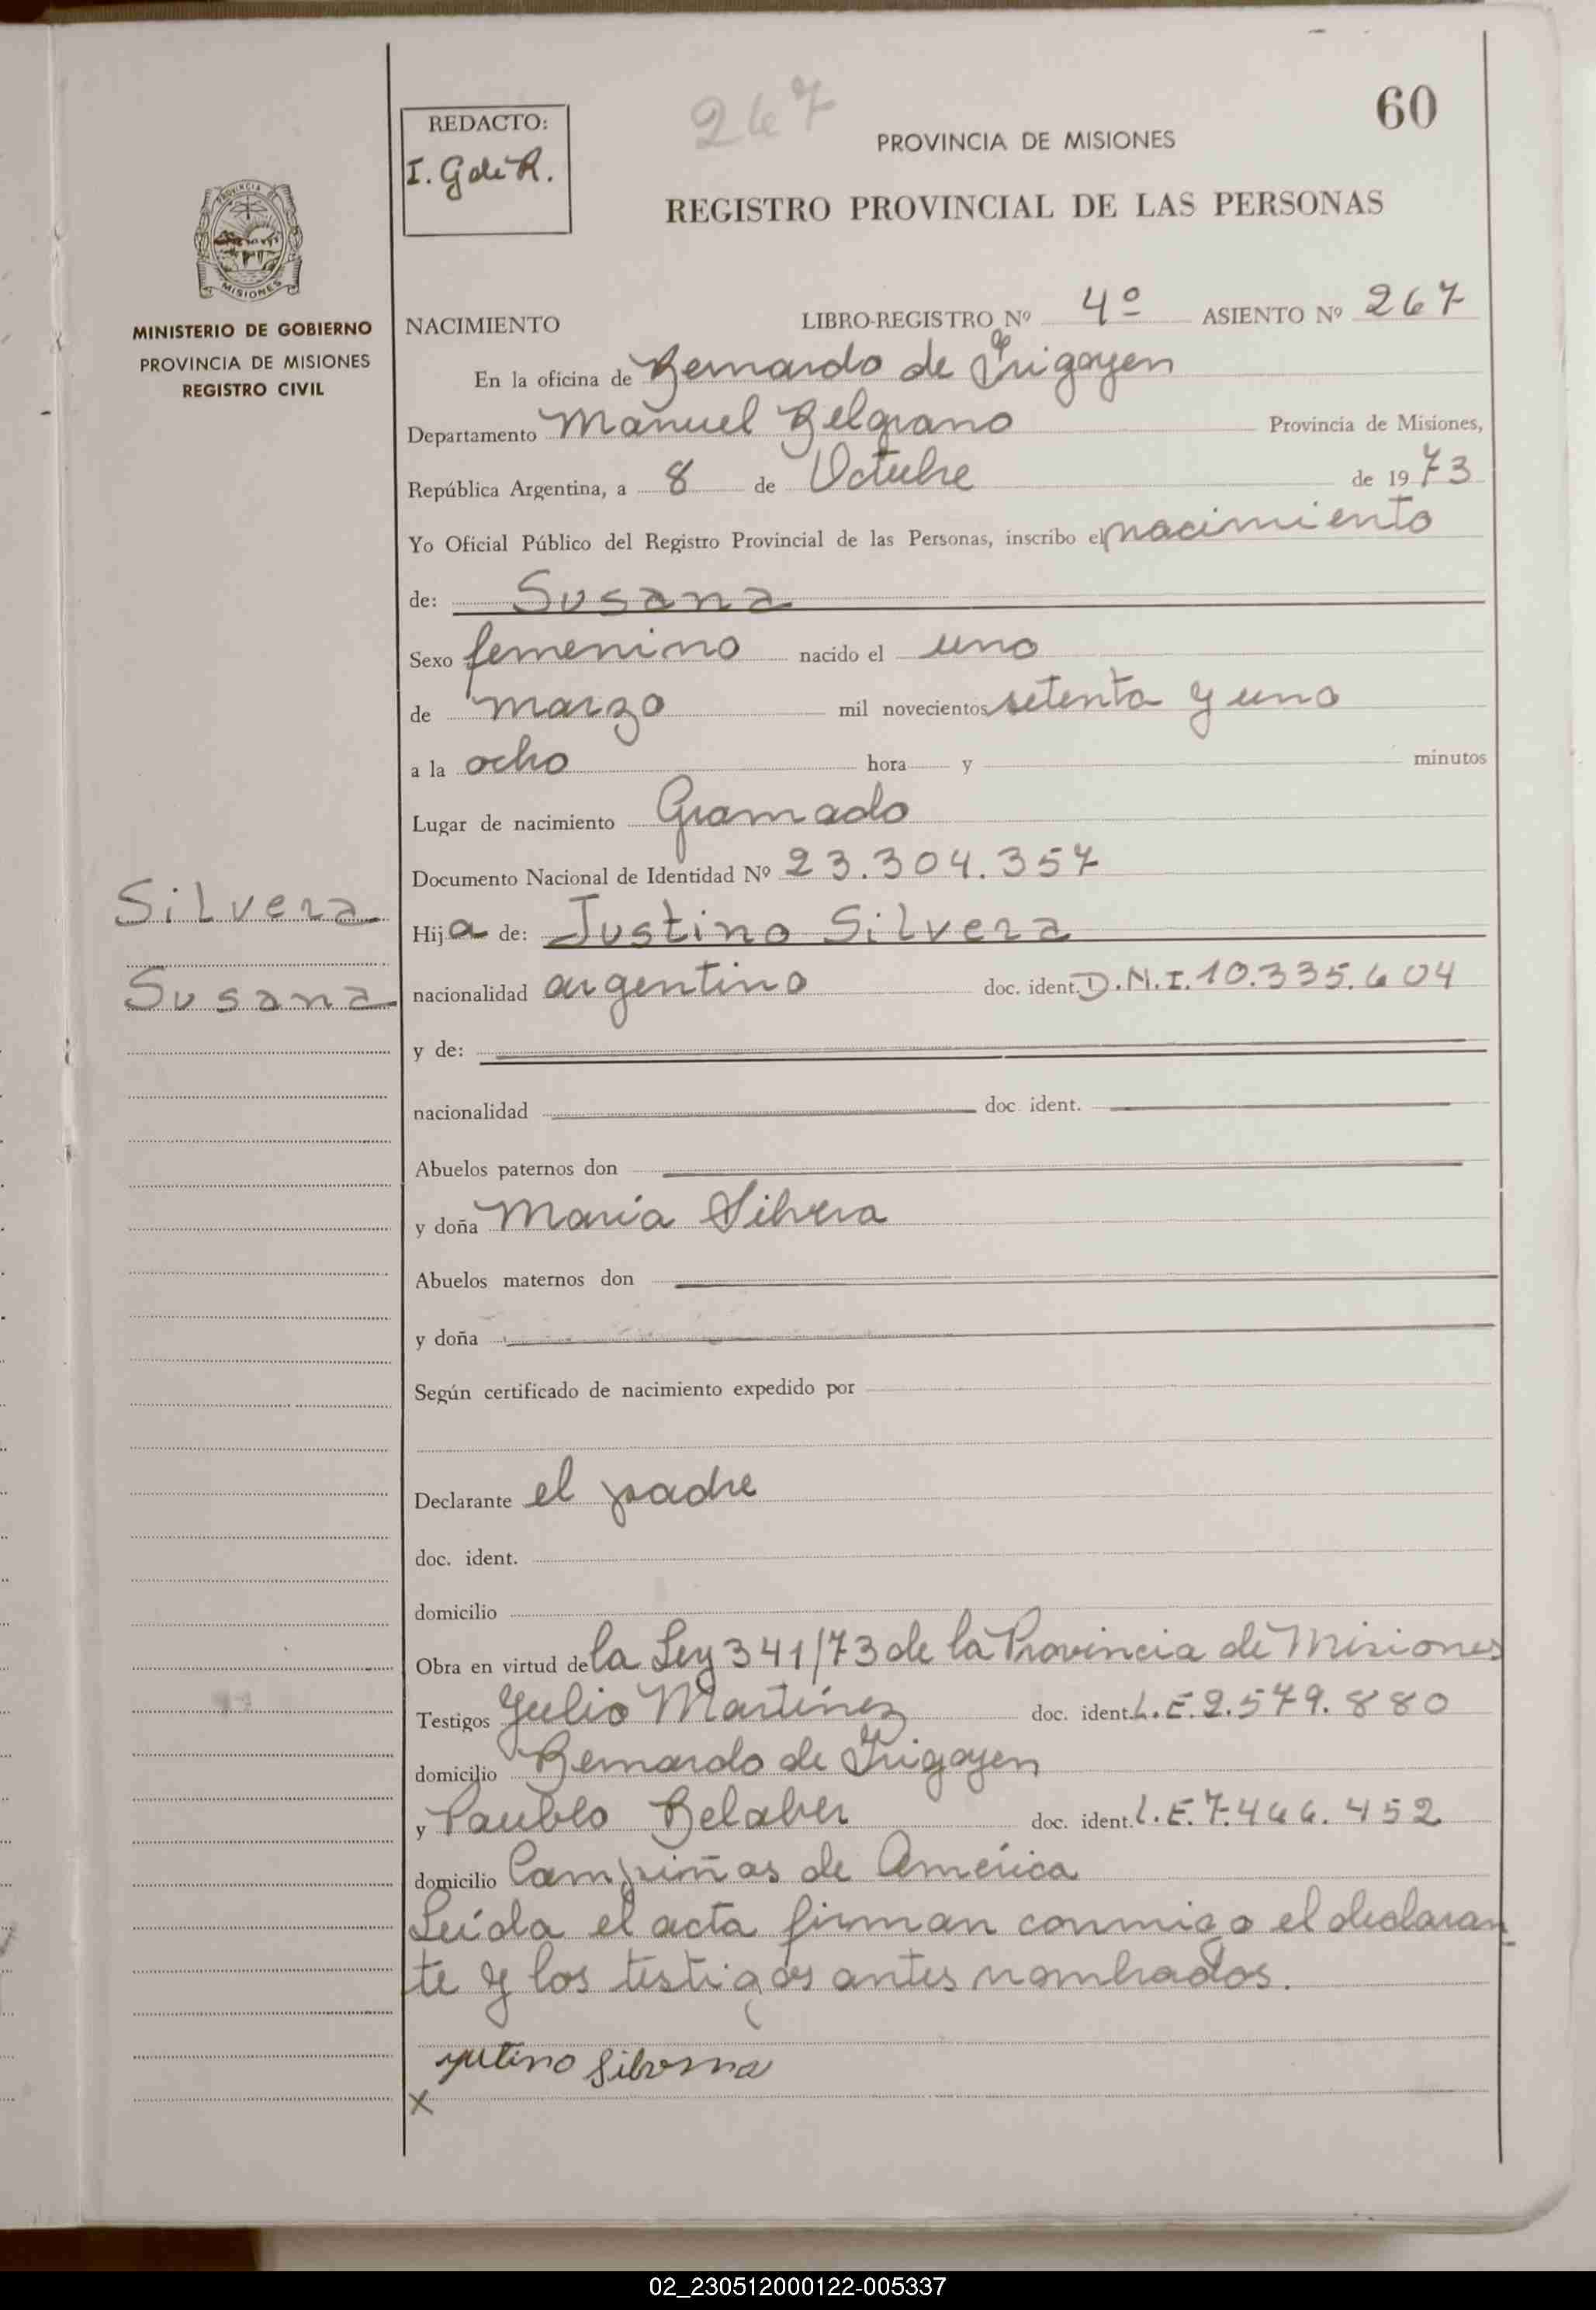 267
60
REDACTO:
I. G de R.
PROVINCIA DE MISIONES
REGISTRO PROVINCIAL DE LAS PERSONAS
PROVINCIA
MISIONES
MINISTERIO DE GOBIERNO
PROVINCIA DE MISIONES
REGISTRO CIVIL
NACIMIENTO LIBRO-REGISTRO Nº 4º ASIENTO Nº 267
En la oficina de Bernardo de Irigoyen
Departamento Manuel Belgrano Provincia de Misiones,
República Argentina, a 8 de Octubre de 1973
Yo Oficial Público del Registro Provincial de las Personas, inscribo el nacimiento
de: Susana
Sexo femenino nacido el uno
de marzo mil novecientos setenta y uno
a la ocho hora y minutos
Lugar de nacimiento Gramado
Documento Nacional de Identidad Nº 23.304.357
Silvera
Hija de: Justino Silvera
Susana
nacionalidad argentino doc. ident. D.N.I. 10.335.604
y de:
nacionalidad doc. ident.
Abuelos paternos don
y doña Maria Silvera
Abuelos maternos don
y doña
Según certificado de nacimiento expedido por
Declarante el padre
doc. ident.
domicilio
Obra en virtud de la Ley 341/73 de la Provincia de Misiones
Testigos Julio Martinez doc. ident. L.E. 2.579.880
domicilio Bernardo de Irigoyen
y Paublo Belaber doc. ident. L.E. 7.466.452
domicilio Campiñas de América
Leída el acta firman conmigo el declaran
te y los testigos antes nombrados.
X
02_230512000122-005337